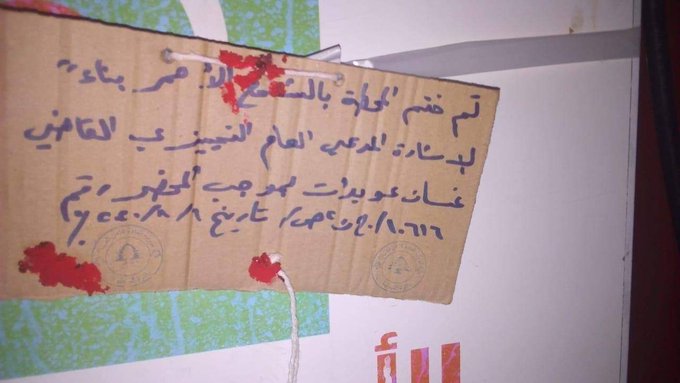 تم ختم المحطة بالشمع الأحمر بناء"
لإشارة المدعي العام التمييزي القاضي
غسان عويدات بموجب المحضر رقم
تاريخ
الأ